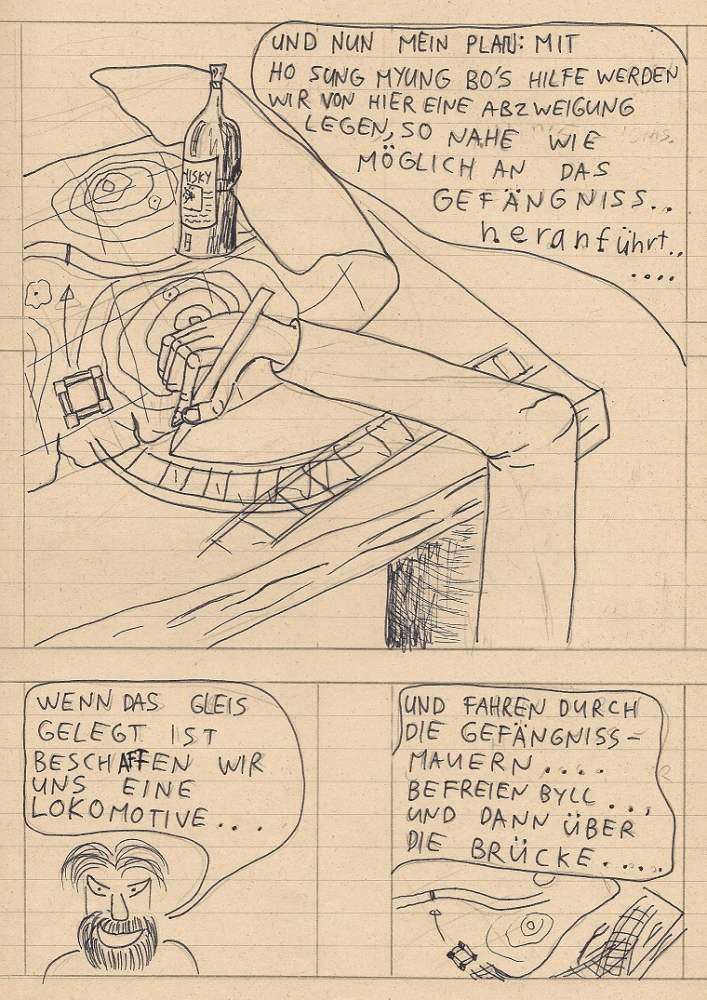 UND NUN MEIN PLAN: MIT
HO SUNG MYUNG BO'S HILFE WERDEN
WIR VON HIER EINE ABZWEIGUNG
LEGEN, SO NAHE WIE
MÖGLICH AN DAS
GEFÄNGNISS..
heranführt..
....
HISKY
WENN DAS GLEIS
GELEGT IST
BESCHAFFEN WIR
UNS EINE
LOKOMOTIVE....
UND FAHREN DURCH
DIE GEFÄNGNISS-
MAUERN....
BEFREIEN BYLL...
UND DANN ÜBER
DIE BRÜCKE.....